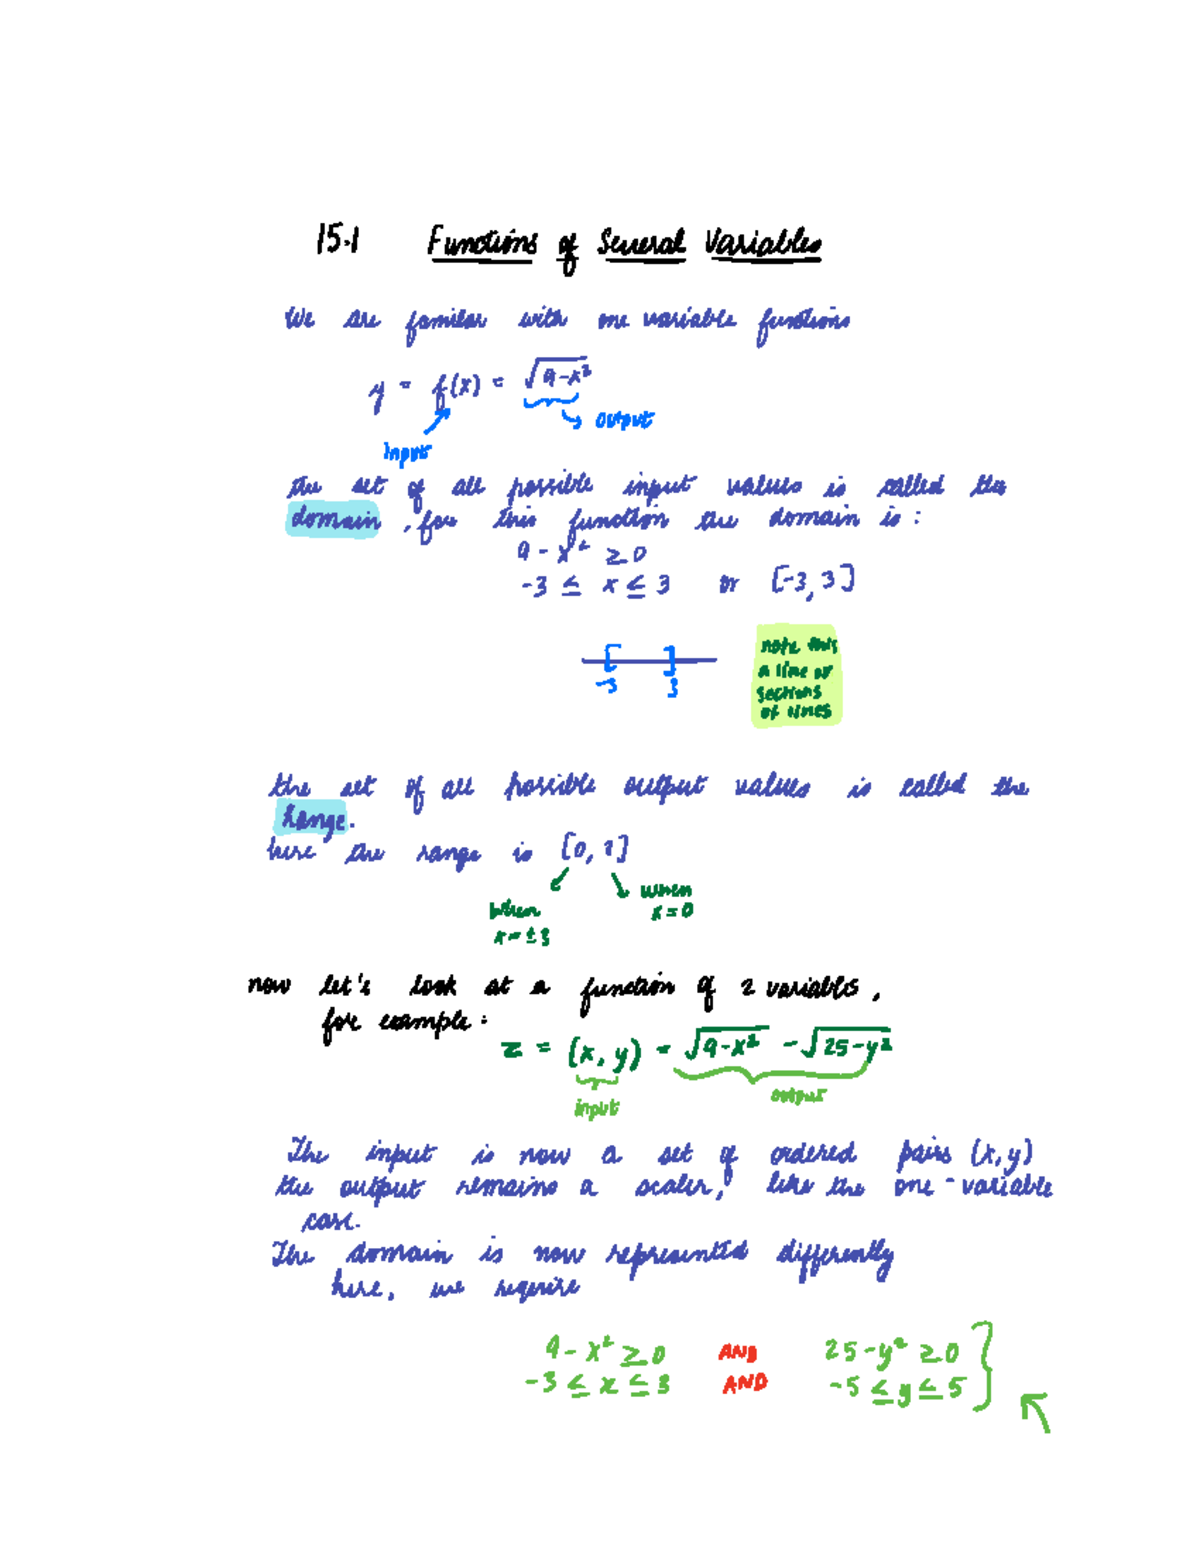 15.1 Functions of Several Variables
We are familar with one variable functions
y = f(x) = √9-x²
output
input
the set of all possible input values is called the
domain, for this function the domain is:
9 - x² ≥ 0
-3 ≤ x ≤ 3 or [-3, 3]
note this
a line or
sections
of lines
-3 3
the set of all possible output values is called the
Range.
here the range is [0, 3]
when
x = 0
when
x = ±3
now let's look at a function of 2 variables,
for example:
z = (x, y) = √9-x² - √25-y²
input
output
The input is now a set of ordered pairs (x,y)
the output remains a scaler, like the one-variable
case.
The domain is now represented differently
here, we require
9 - x² ≥ 0 AND 25 - y² ≥ 0
-3 ≤ x ≤ 3 AND -5 ≤ y ≤ 5